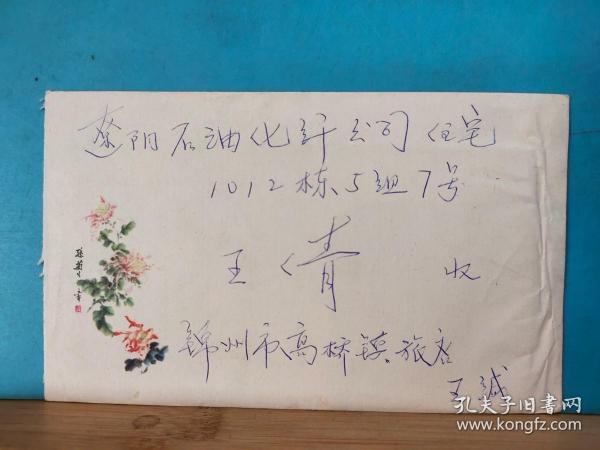 辽阳石油化纤公司住宅
1012栋5组7号
王倩 收
锦州市高桥镇旅店
王诚
孔夫子旧书网
www.kongfz.com